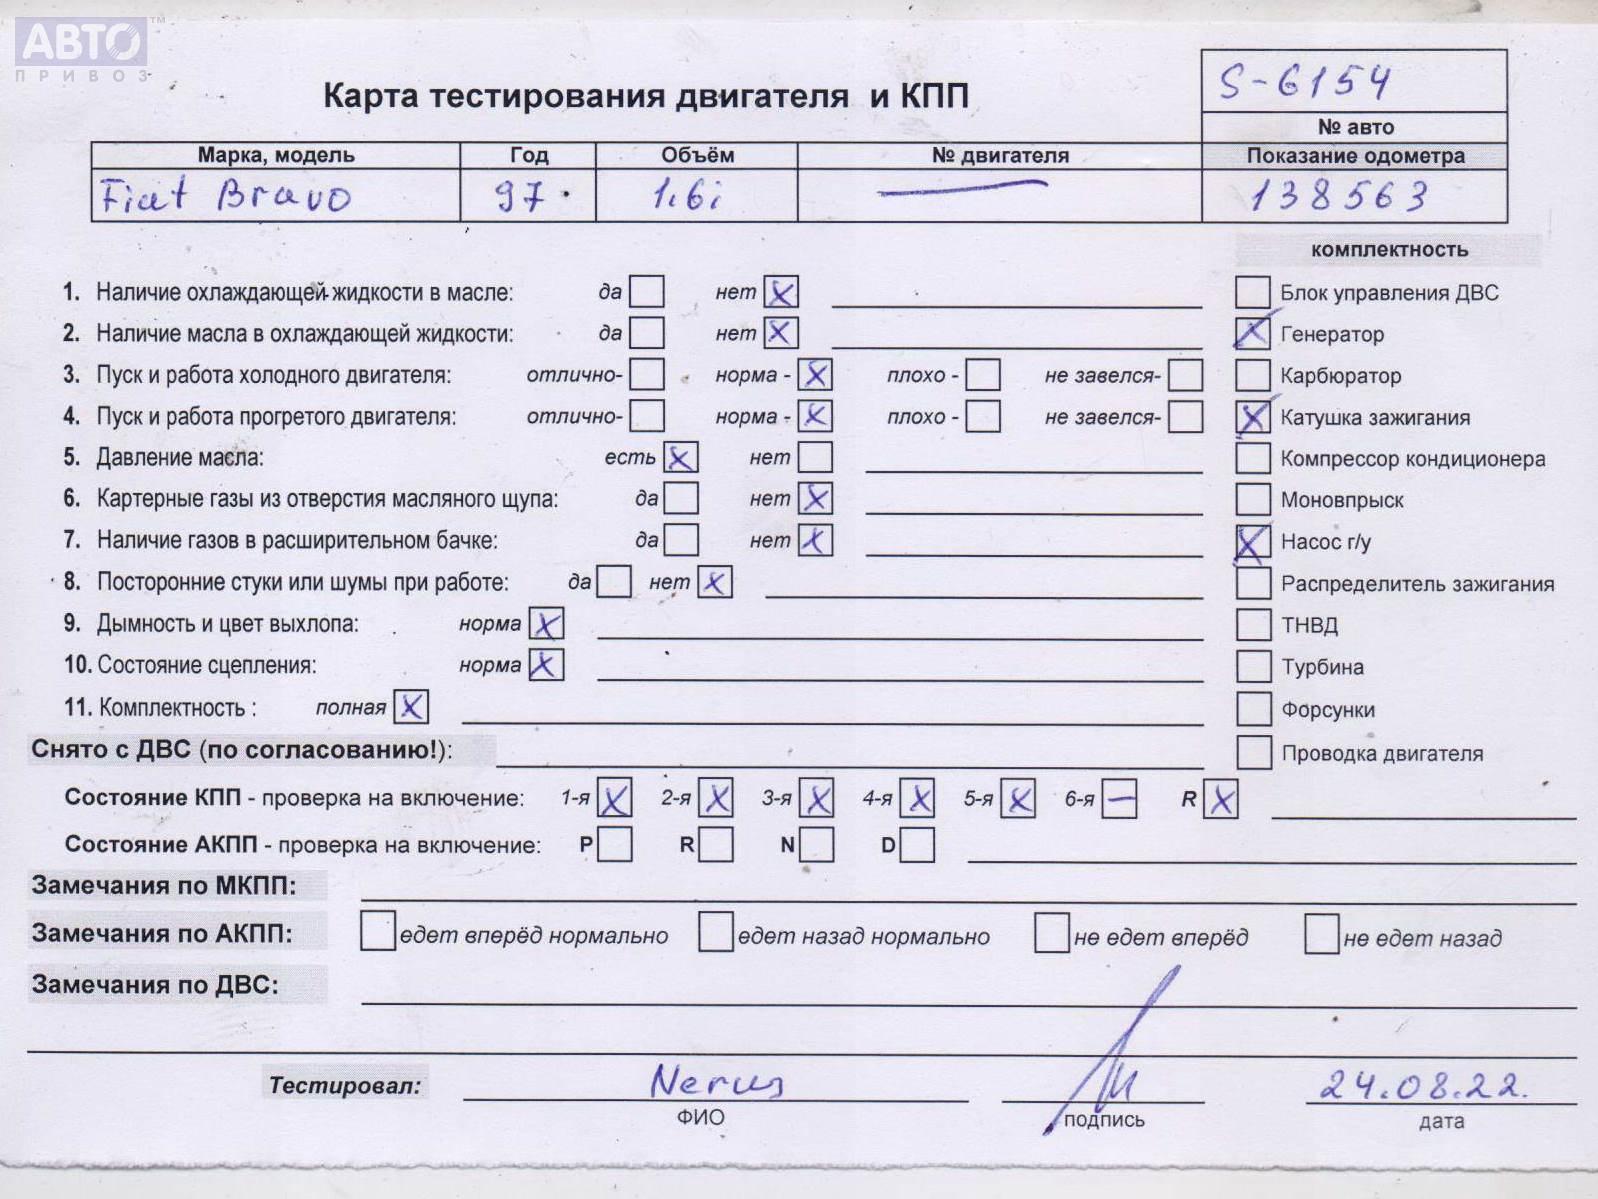 АВТО™
ПРИВОЗ
Карта тестирования двигателя и КПП
S-6154
№ авто
Марка, модель Год Объём № двигателя Показание одометра
Fiat Bravo 97. 1.6i — 138563
комплектность
1. Наличие охлаждающей жидкости в масле: да нет X
Блок управления ДВС
2. Наличие масла в охлаждающей жидкости: да нет X
X Генератор
3. Пуск и работа холодного двигателя: отлично- норма - X плохо - не завелся-
Карбюратор
4. Пуск и работа прогретого двигателя: отлично- норма - X плохо - не завелся-
X Катушка зажигания
5. Давление масла: есть X нет
Компрессор кондиционера
6. Картерные газы из отверстия масляного щупа: да нет X
Моновпрыск
7. Наличие газов в расширительном бачке: да нет X
X Насос г/у
8. Посторонние стуки или шумы при работе: да нет X
Распределитель зажигания
9. Дымность и цвет выхлопа: норма X
ТНВД
10. Состояние сцепления: норма X
Турбина
11. Комплектность : полная X
Форсунки
Снято с ДВС (по согласованию!):
Проводка двигателя
Состояние КПП - проверка на включение: 1-я X 2-я X 3-я X 4-я X 5-я X 6-я — R X
Состояние АКПП - проверка на включение: P R N D
Замечания по МКПП:
Замечания по АКПП: едет вперёд нормально едет назад нормально не едет вперёд не едет назад
Замечания по ДВС:
Тестировал: Nerus 24.08.22.
ФИО подпись дата